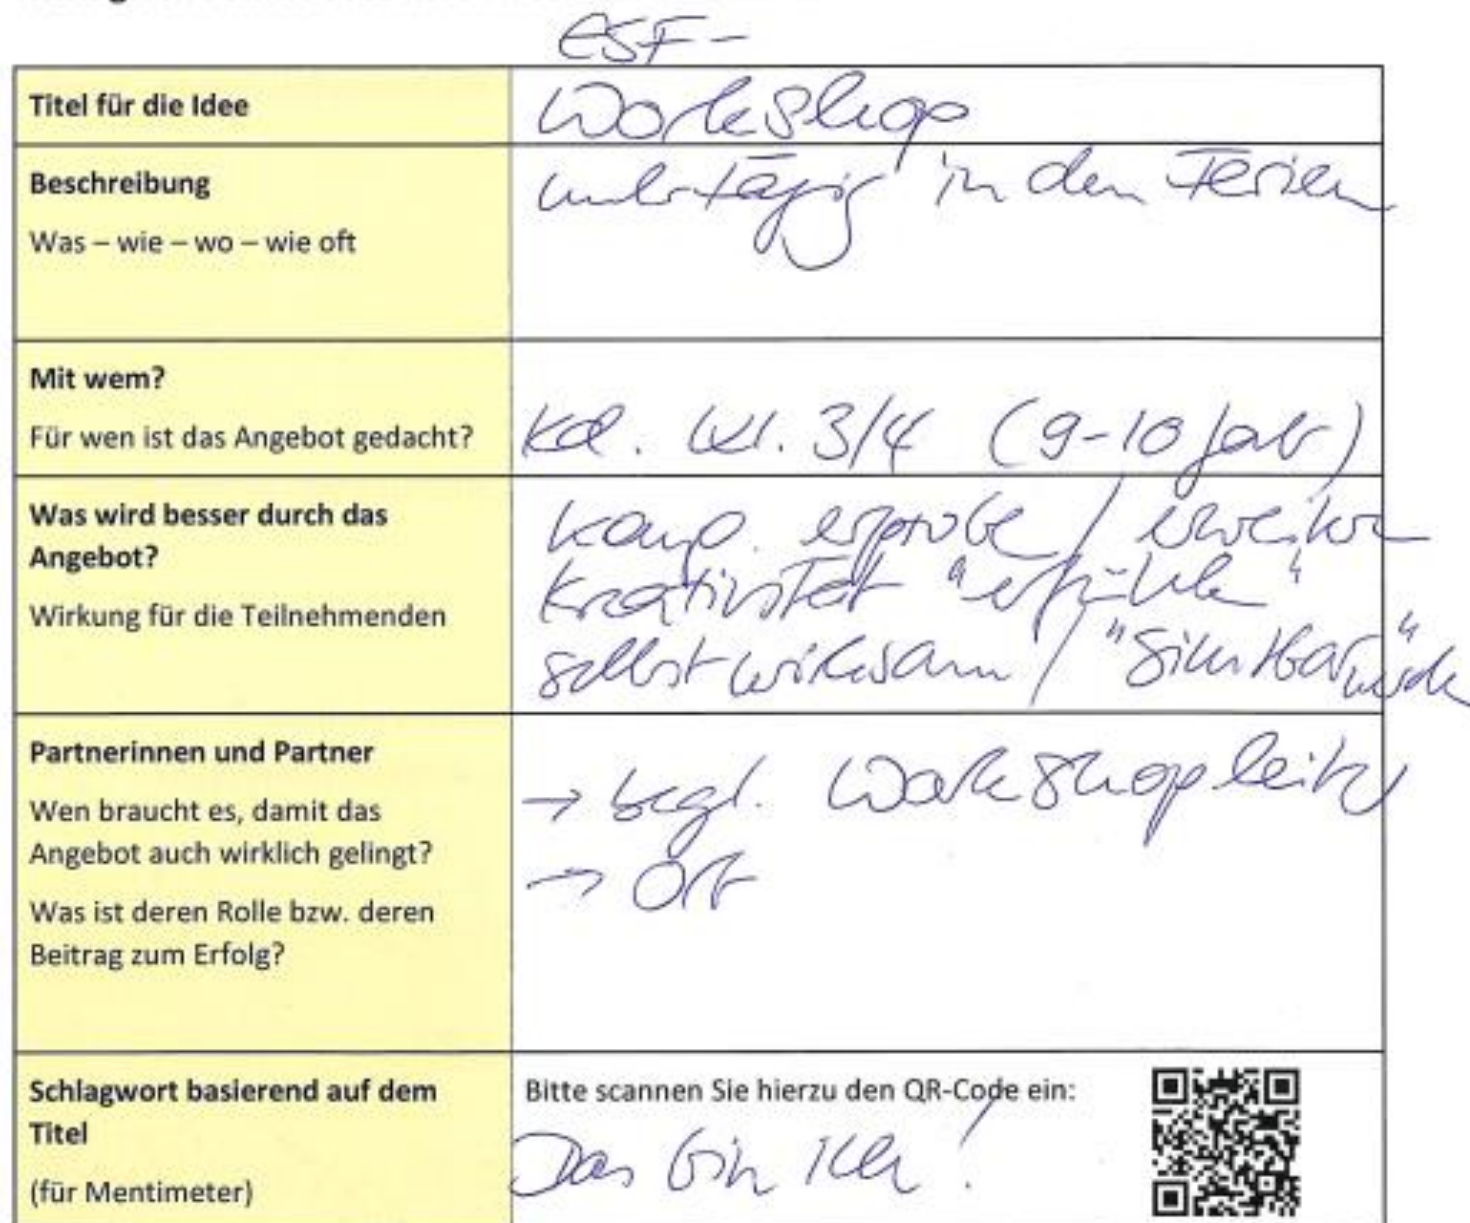 ESF-
Titel für die Idee
Workshop
Beschreibung
mehrtägig in den Ferien
Was – wie – wo – wie oft
Mit wem?
Für wen ist das Angebot gedacht?
Kl. 3/4 (9-10 Jahr)
Was wird besser durch das
Angebot?
Wirkung für die Teilnehmenden
Komp. erprobe / erweitern
Kreativität "erfühlen"
selbstwirksam / "sichtbar" werde
Partnerinnen und Partner
Wen braucht es, damit das
Angebot auch wirklich gelingt?
Was ist deren Rolle bzw. deren
Beitrag zum Erfolg?
→ Workshopleiter
→ Ort
Schlagwort basierend auf dem
Titel
(für Mentimeter)
Bitte scannen Sie hierzu den QR-Code ein:
Das bin ich!